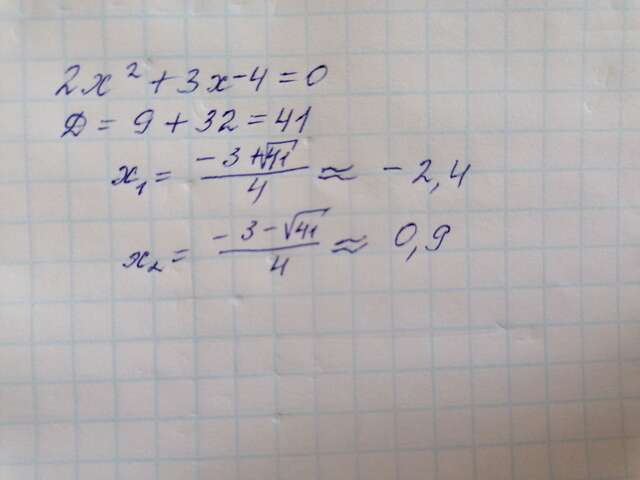 2x² + 3x - 4 = 0
Д = 9 + 32 = 41
x₁ = (-3 + √41)/4 ≈ -2,4
x₂ = (-3 - √41)/4 ≈ 0,9